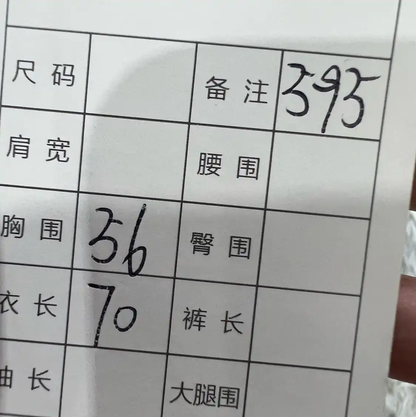 尺码 备注 595
肩宽 腰围
胸围 56 臀围
衣长 70 裤长
袖长 大腿围